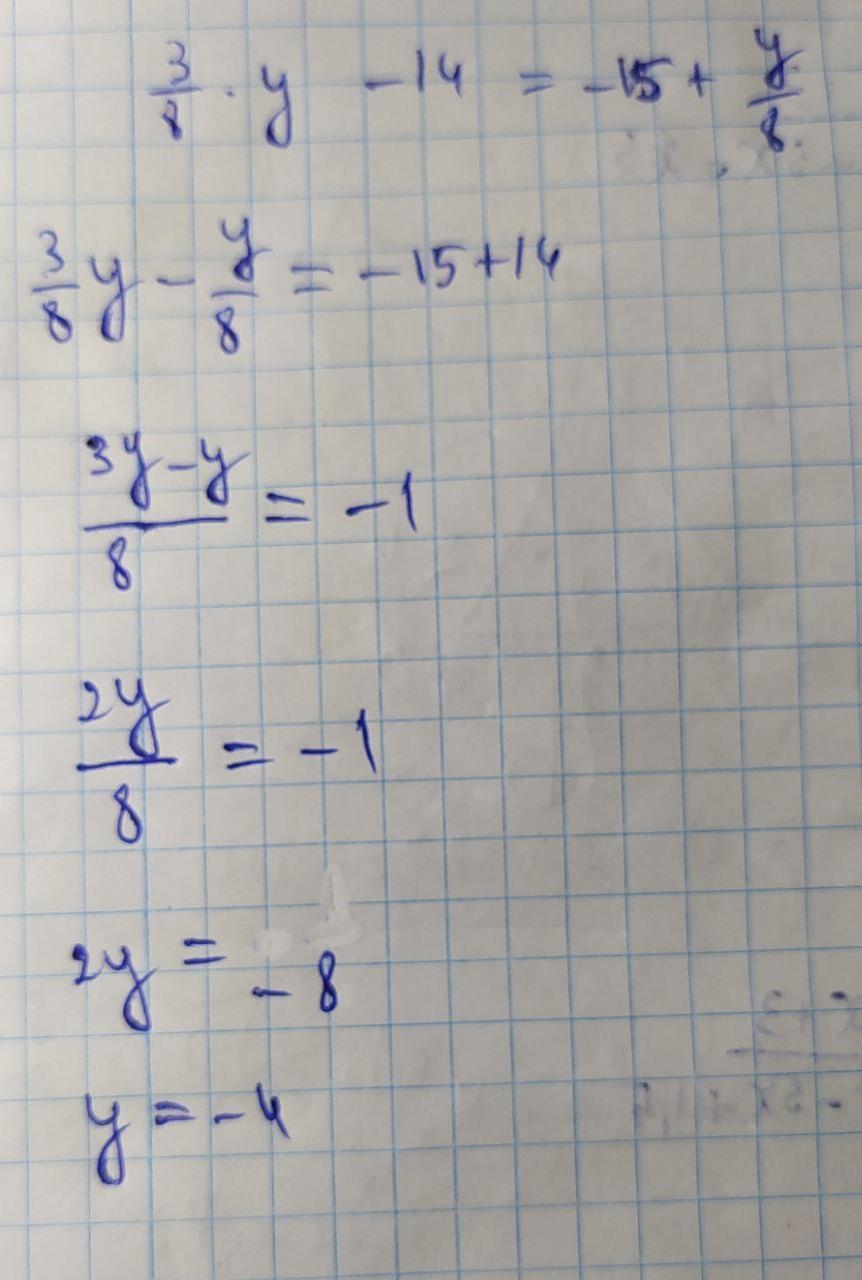 3/8 · y - 14 = -15 + y/8
3/8 y - y/8 = -15 + 14
(3y - y)/8 = -1
2y/8 = -1
2y = -8
y = -4